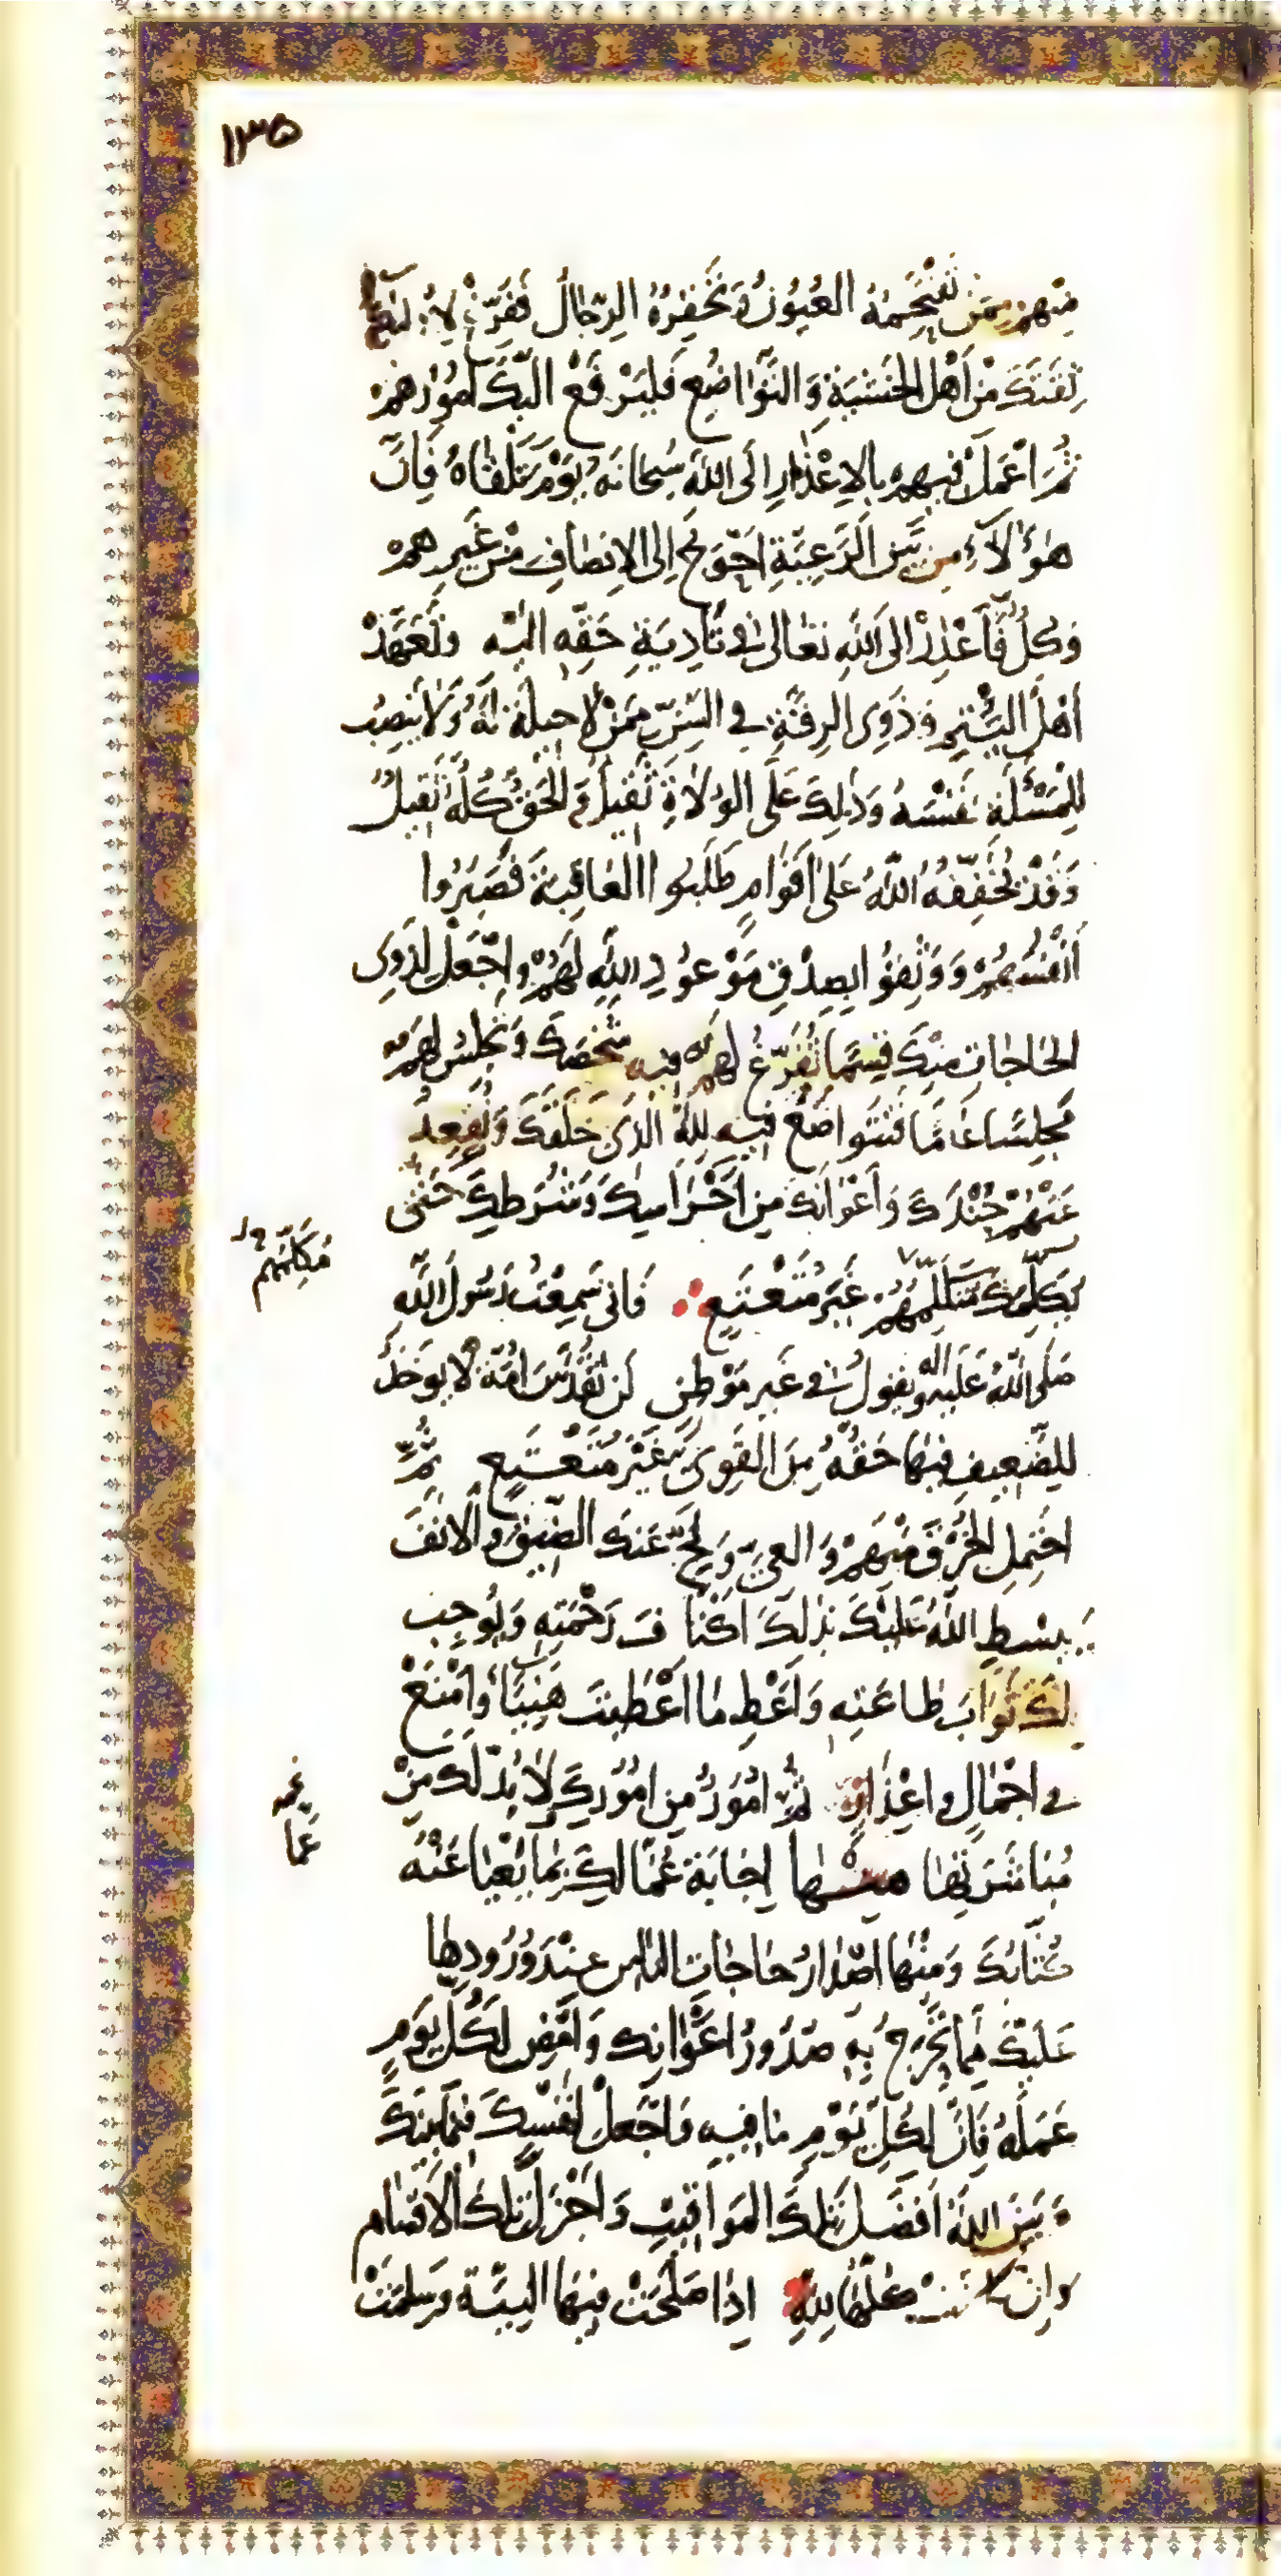 ١٣٥
مِنْهُمْ مِمَّنْ تَقْتَحِمُهُ العُيُونُ وَ تَحْقِرُهُ الرِّجَالُ فَفَرِّغْ لِأُولٰئِكَ
ثِقَتَكَ مِنْ اَهْلِ الخَشْيَةِ وَ التَّوَاضُعِ فَلْيَرْفَعْ اِلَيْكَ اُمُورَهُمْ
ثُمَّ اعْمَلْ فيهِمْ بِالاِعْذَارِ اِلَى اللّٰهِ سُبْحَانَهُ يَوْمَ تَلْقَاهُ فَاِنَّ
هٰؤُلَاءِ مِن بَيْنِ الرَّعِيَّةِ اَحْوَجُ اِلَى الاِنصَافِ مِنْ غَيْرِهِمْ
وَكُلٌّ فَاَعْذِرْ اِلَى اللّٰهِ تَعَالٰى فى تَأدِيَةِ حَقِّهِ اِلَيْهِ وَتَعَهَّدْ
اَهْلَ اليُتْمِ وَ ذَوِى الرِقَّةِ فِى السِّنِّ مِمَّنْ لَا حِيلَةَ لَهُ وَلَا يَنْصِبُ
لِلْمَسْئَلَةِ نَفْسَهُ وَذٰلِكَ عَلَى الوُلَاةِ ثَقِيلٌ وَ الْحَقُّ كُلُّهُ ثَقِيلٌ
وَقَدْ يُخَفِّفُهُ اللّٰهُ عَلٰى اَقْوَامٍ طَلَبُوا العَاقِبَةَ فَصَبَرُوا
اَنْفُسَهُمْ وَ وَثِقُوا بِصِدْقِ مَوْعُودِ اللّٰهِ لَهُمْ وَاجْعَلْ لِذَوِى
الحَاجَاتِ مِنْكَ قِسْمًا تُفَرِّغُ لَهُمْ فيهِ شَخْصَكَ وَ تَجْلِسُ لَهُمْ
مَجْلِسًا عَامًّا فَتَتَوَاضَعُ فيهِ لِلّٰهِ الَّذِى خَلَقَكَ وَ تُقْعِدُ
عَنْهُمْ جُنْدَكَ وَ اَعْوَانَكَ مِن اَحْرَاسِكَ وَ شُرَطِكَ حَتّٰى
يُكَلِّمَكَ مُتَكَلِّمُهُمْ غَيْرَ مُتَعْتَعٍ فَاِنّى سَمِعْتُ رَسُولَ اللّٰهِ
مُكَلِّمُهُم
صَلَّى اللّٰهُ عَلَيْهِ وَ اٰلِه يَقولُ فى غَيرِ مَوْطِنٍ لَن تُقَدَّسَ اُمَّةٌ لَا يُؤخَذُ
لِلضَّعِيفِ فيهَا حَقُّهُ مِنَ القَوِىِّ غَيْرَ مُتَعْتَعٍ ثُمَّ
احْتَمِلِ الخُرْقَ مِنْهُمْ وَ العِىَّ وَ نَحِّ عَنكَ الضِّيقَ وَ الاَنَفَ
يَبْسُطِ اللّٰهُ عَلَيْكَ بذٰلِكَ اَكْنَافَ رَحْمَتِهِ وَ يُوجِب
لَكَ ثَوَابَ طَاعَتِهِ وَ اَعْطِ مَا اَعْطَيتَ هَنِيئًا وَ امْنَعْ
فى اِجْمَالٍ وَ اِعْذَارٍ ثُمَّ اُمُورٌ مِن اُمُورِكَ لَا بُدَّ لَكَ مِنْ
عَمَّا
مُبَاشَرَتِهَا مِنْهَا اِجَابَةُ عُمَّالِكَ بِمَا يَعْيَا عَنْهُ
كُتَّابُكَ وَ مِنْهَا اِصْدَارُ حَاجَاتِ النَّاسِ عِنْدَ وُرُودِهَا
عَلَيْكَ مِمَّا تَحْرَجُ بِهِ صُدُورُ اَعْوَانِكَ وَ اَمْضِ لِكُلِّ يَوْمٍ
عَمَلَهُ فَاِنَّ لِكُلِّ يَوْمٍ مَا فيهِ وَ اجْعَلْ لِنَفْسِكَ فيمَا بَيْنَكَ
وَ بَيْنَ اللّٰهِ اَفْضَلَ تِلْكَ المَوَاقيتِ وَ اَجْزَلَ تِلْكَ الاَقْسَامِ
وَاِن كَانَتْ كُلُّهَا لِلّٰهِ اِذَا صَلُحَتْ فِيهَا النِيَّة وَ سَلِمَتْ